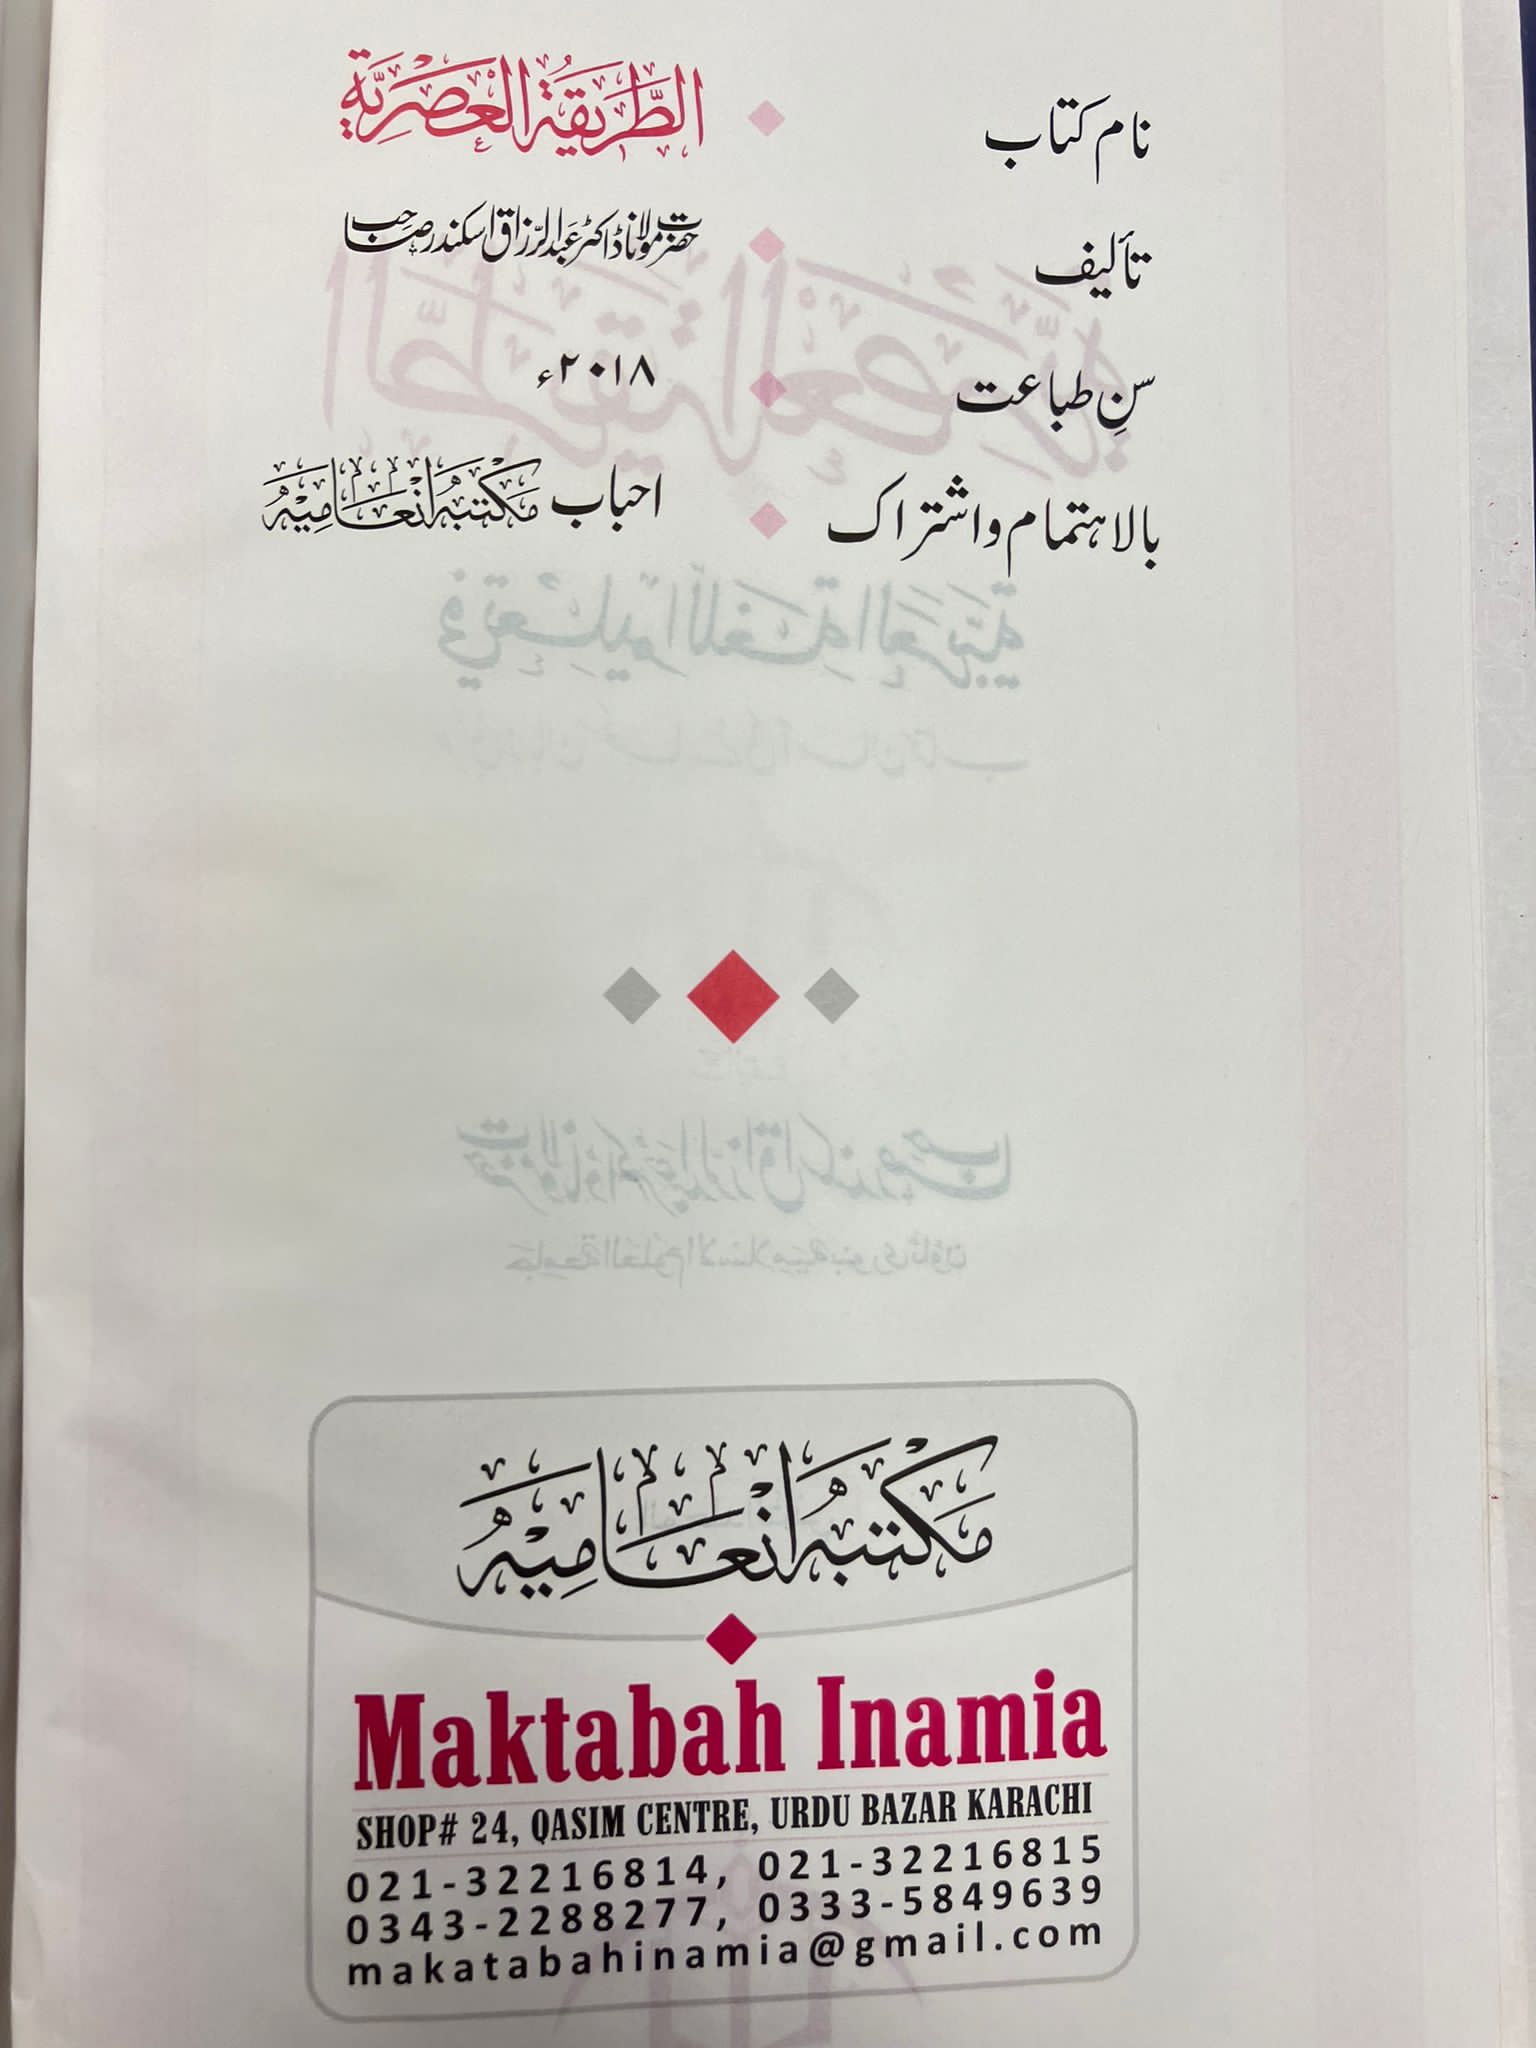 نام کتاب ◆ الطَّرِيقَةُ الْعَصْرِيَّة
تألیف ◆ حضرت مولانا ڈاکٹر عبدالرّزاق اسکندر صاحب
سنِ طباعت ◆ ۲۰۱۸ء
بالاہتمام واشتراک ◆ احباب مکتبہ انعامیہ
مکتبہ انعامیہ
Maktabah Inamia
SHOP# 24, QASIM CENTRE, URDU BAZAR KARACHI
021-32216814, 021-32216815
0343-2288277, 0333-5849639
makatabahinamia@gmail.com